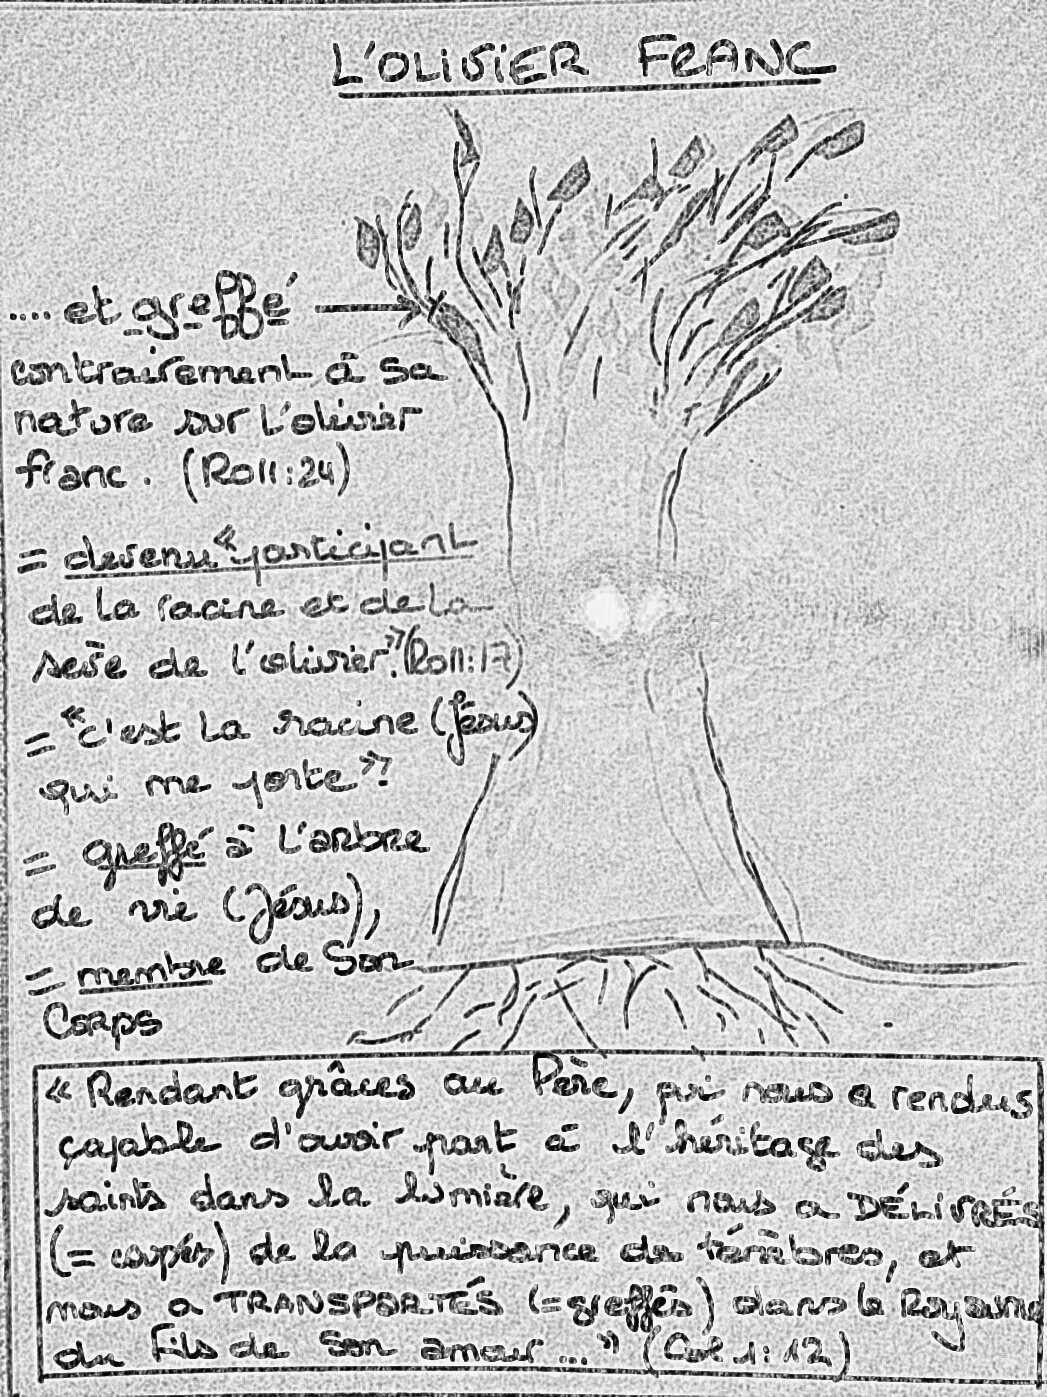 L'OLIVIER FRANC
.... et greffé
contrairement à sa
nature sur l'olivier
franc. (Ro11:24)
= devenu "participant
de la racine et de la
sève de l'olivier". (Ro11:17)
= "c'est la racine (Jésus)
qui me porte".
= greffé à l'arbre
de vie (Jésus),
= membre de Son
Corps
« Rendant grâces au Père, qui nous a rendus
capable d'avoir part à l'héritage des
saints dans la lumière, qui nous a DÉLIVRÉS
(= coupés) de la puissance des ténèbres, et
nous a TRANSPORTÉS (= greffés) dans le Royaume
du Fils de Son amour ... » (Col 1:12)